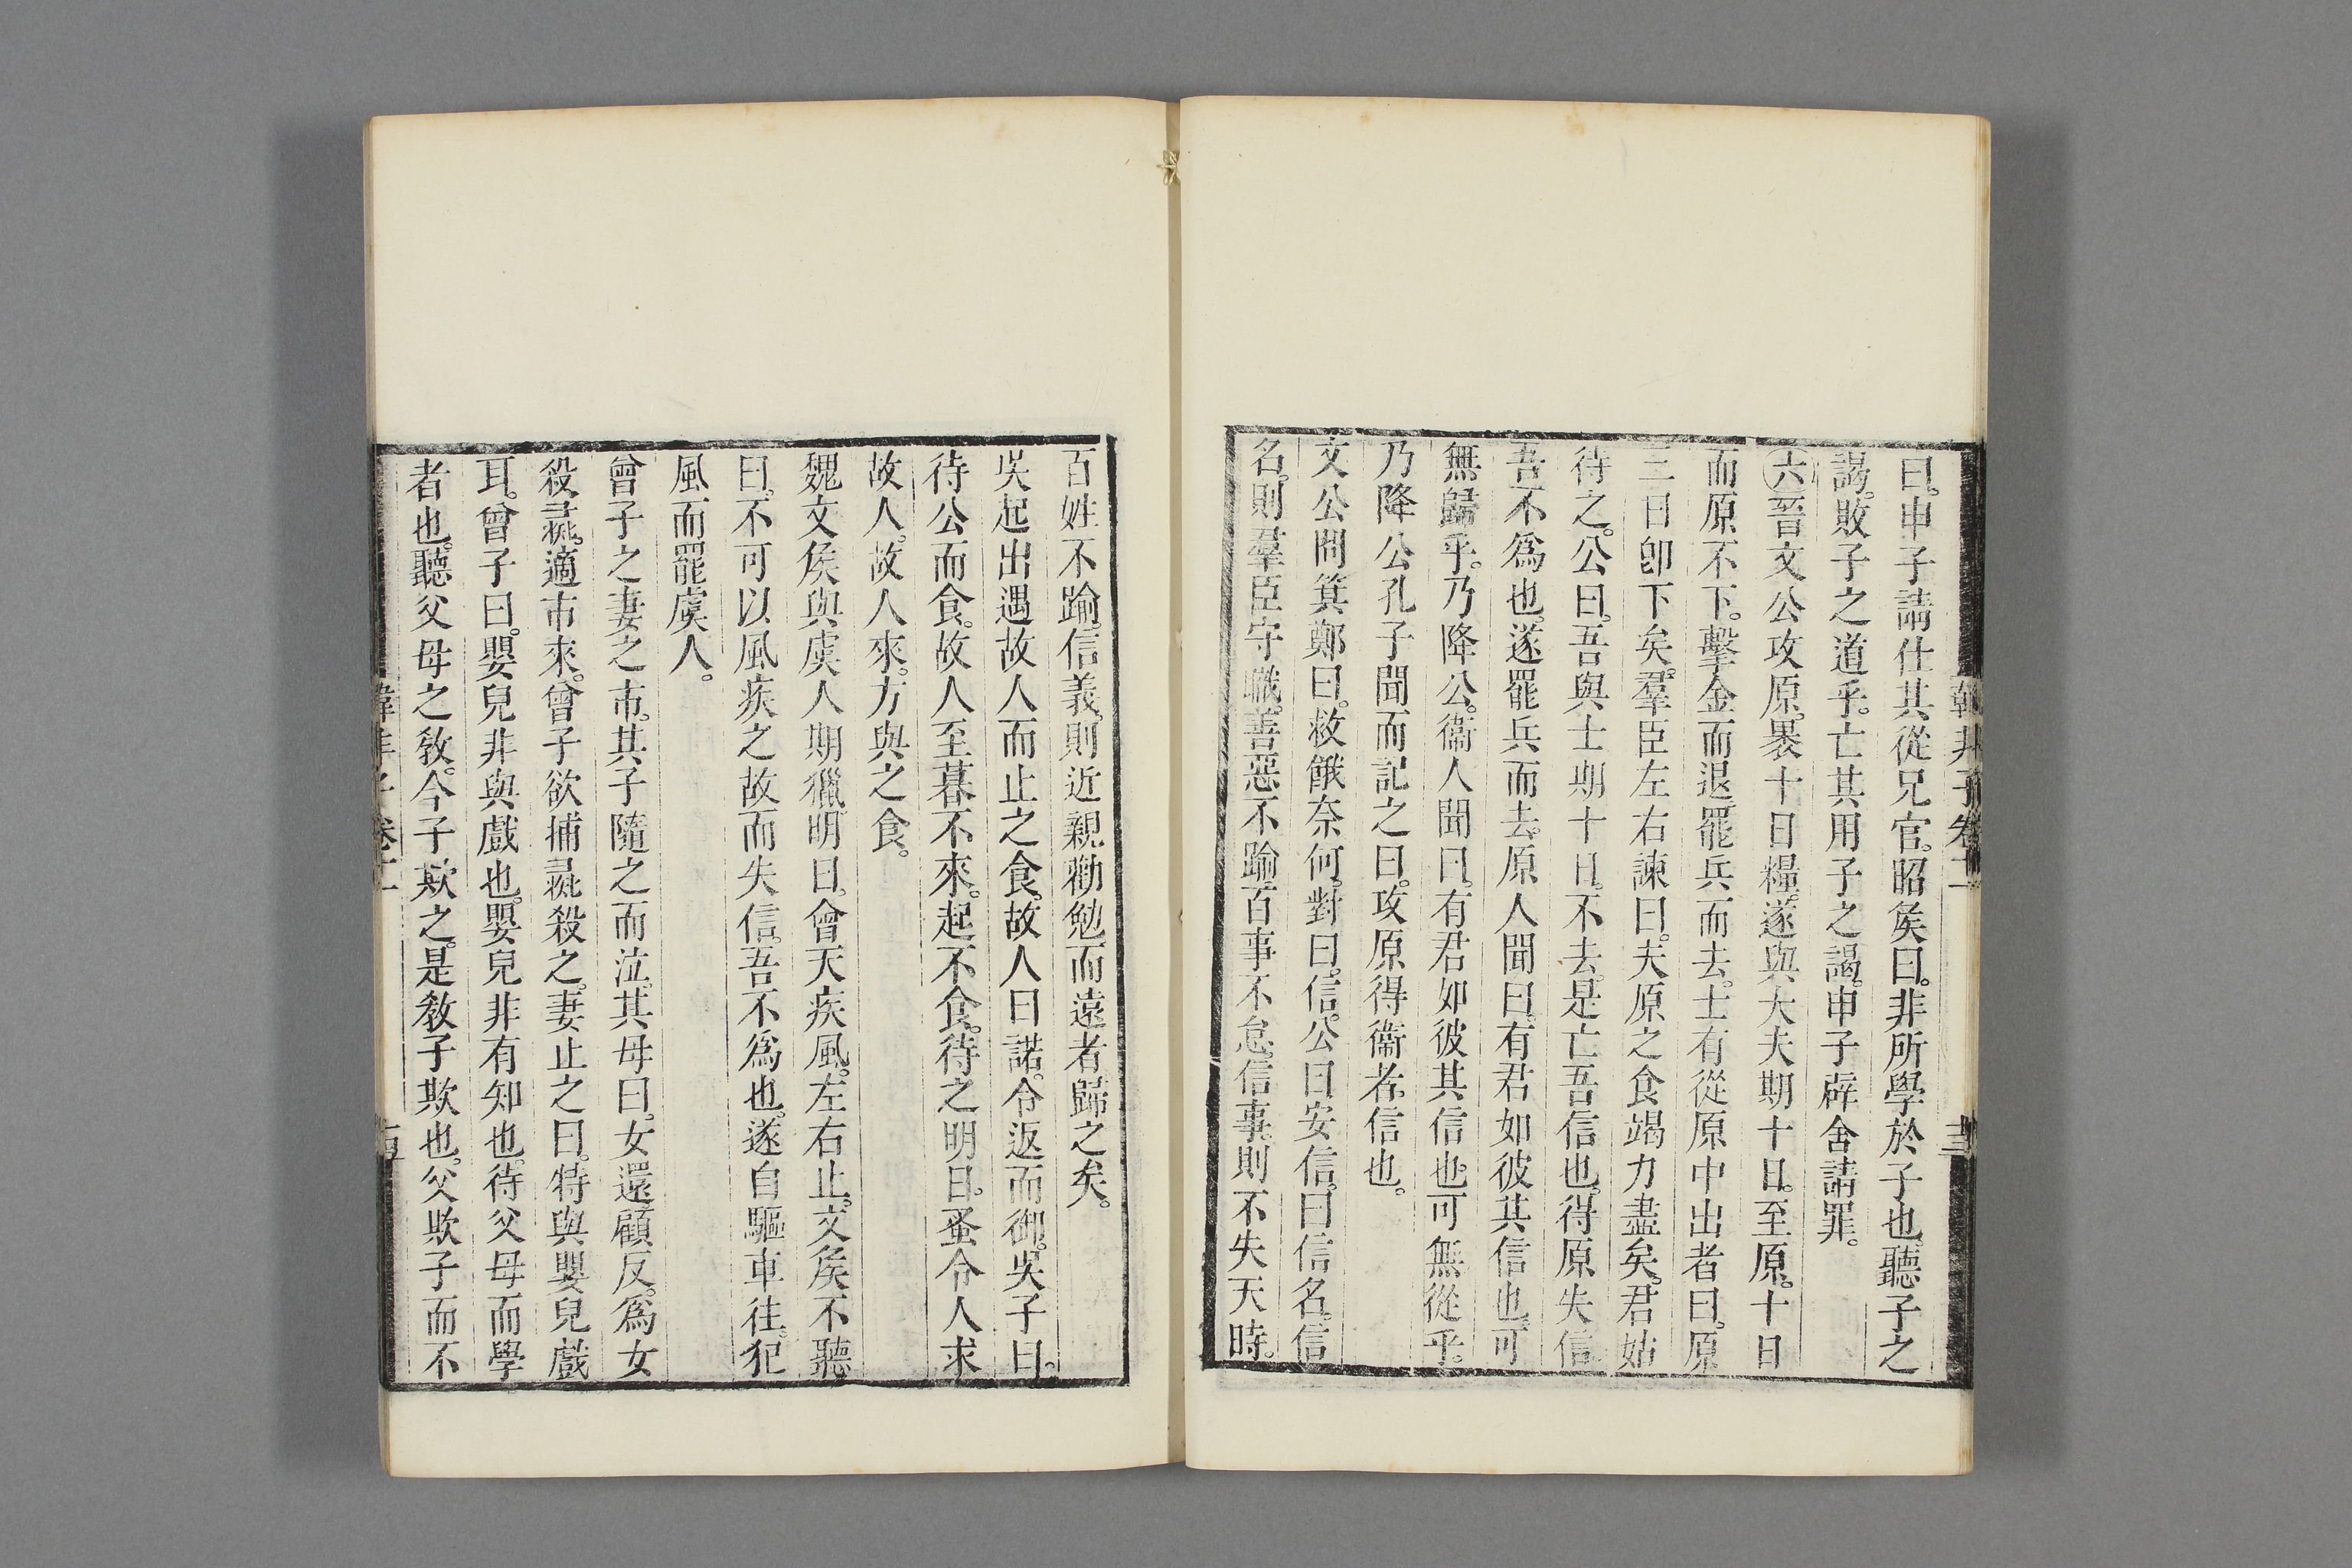 韓非子卷十一
曰。申子請仕其從兄官。昭矦曰。非所學於子也。聽子之
謁。敗子之道乎。亡其用子之謁。申子辟舍請罪。
六晉文公攻原。裹十日糧。遂與大夫期十日。至原。十日
而原不下。擊金而退罷兵而去。士有從原中出者曰。原
三日卽下矣。羣臣左右諫曰。夫原之食竭力盡矣。君姑
待之。公曰。吾與士期十日。不去。是亡吾信也。得原失信。
吾不爲也。遂罷兵而去。原人聞曰。有君如彼其信也。可
無歸乎。乃降公。衞人聞曰。有君如彼其信也。可無從乎。
乃降公孔子聞而記之曰。攻原得衞者。信也。
文公問箕鄭曰。救餓奈何。對曰。信。公曰安信。曰信名。信
名。則羣臣守職。善惡不踰百事不怠。信事。則不失天時。
百姓不踰。信義。則近親勸勉而遠者歸之矣。
吳起出遇故人而止之食。故人曰諾。令返而御。吳子曰。
待公而食。故人至暮不來。起不食。待之明日。蚤令人求
故人。故人來。方與之食。
魏文矦與虞人期獵。明日。會天疾風。左右止。文矦不聽
曰。不可以風疾之故而失信。吾不爲也。遂自驅車往。犯
風而罷虞人。
曾子之妻之市。其子隨之而泣。其母曰。女還。顧反。爲女
殺彘。適市來。曾子欲捕彘殺之。妻止之曰。特與嬰兒戲
耳。曾子曰。嬰兒非與戲也。嬰兒非有知也。待父母而學
者也。聽父母之敎。今子欺之。是敎子欺也。父欺子而不
韓非子卷十一